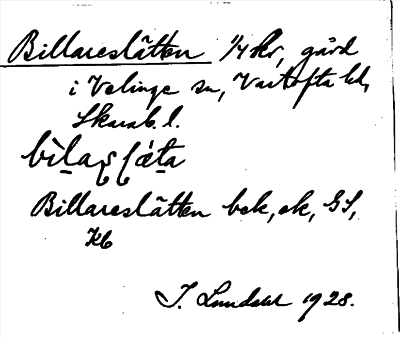 Billareslätten 1/4 skr, gård
i Velinge sn, Vartofta hd,
Skarab. l.
Billareslätten bek, ek, GS,
Kb
J. Lundahl 1928.